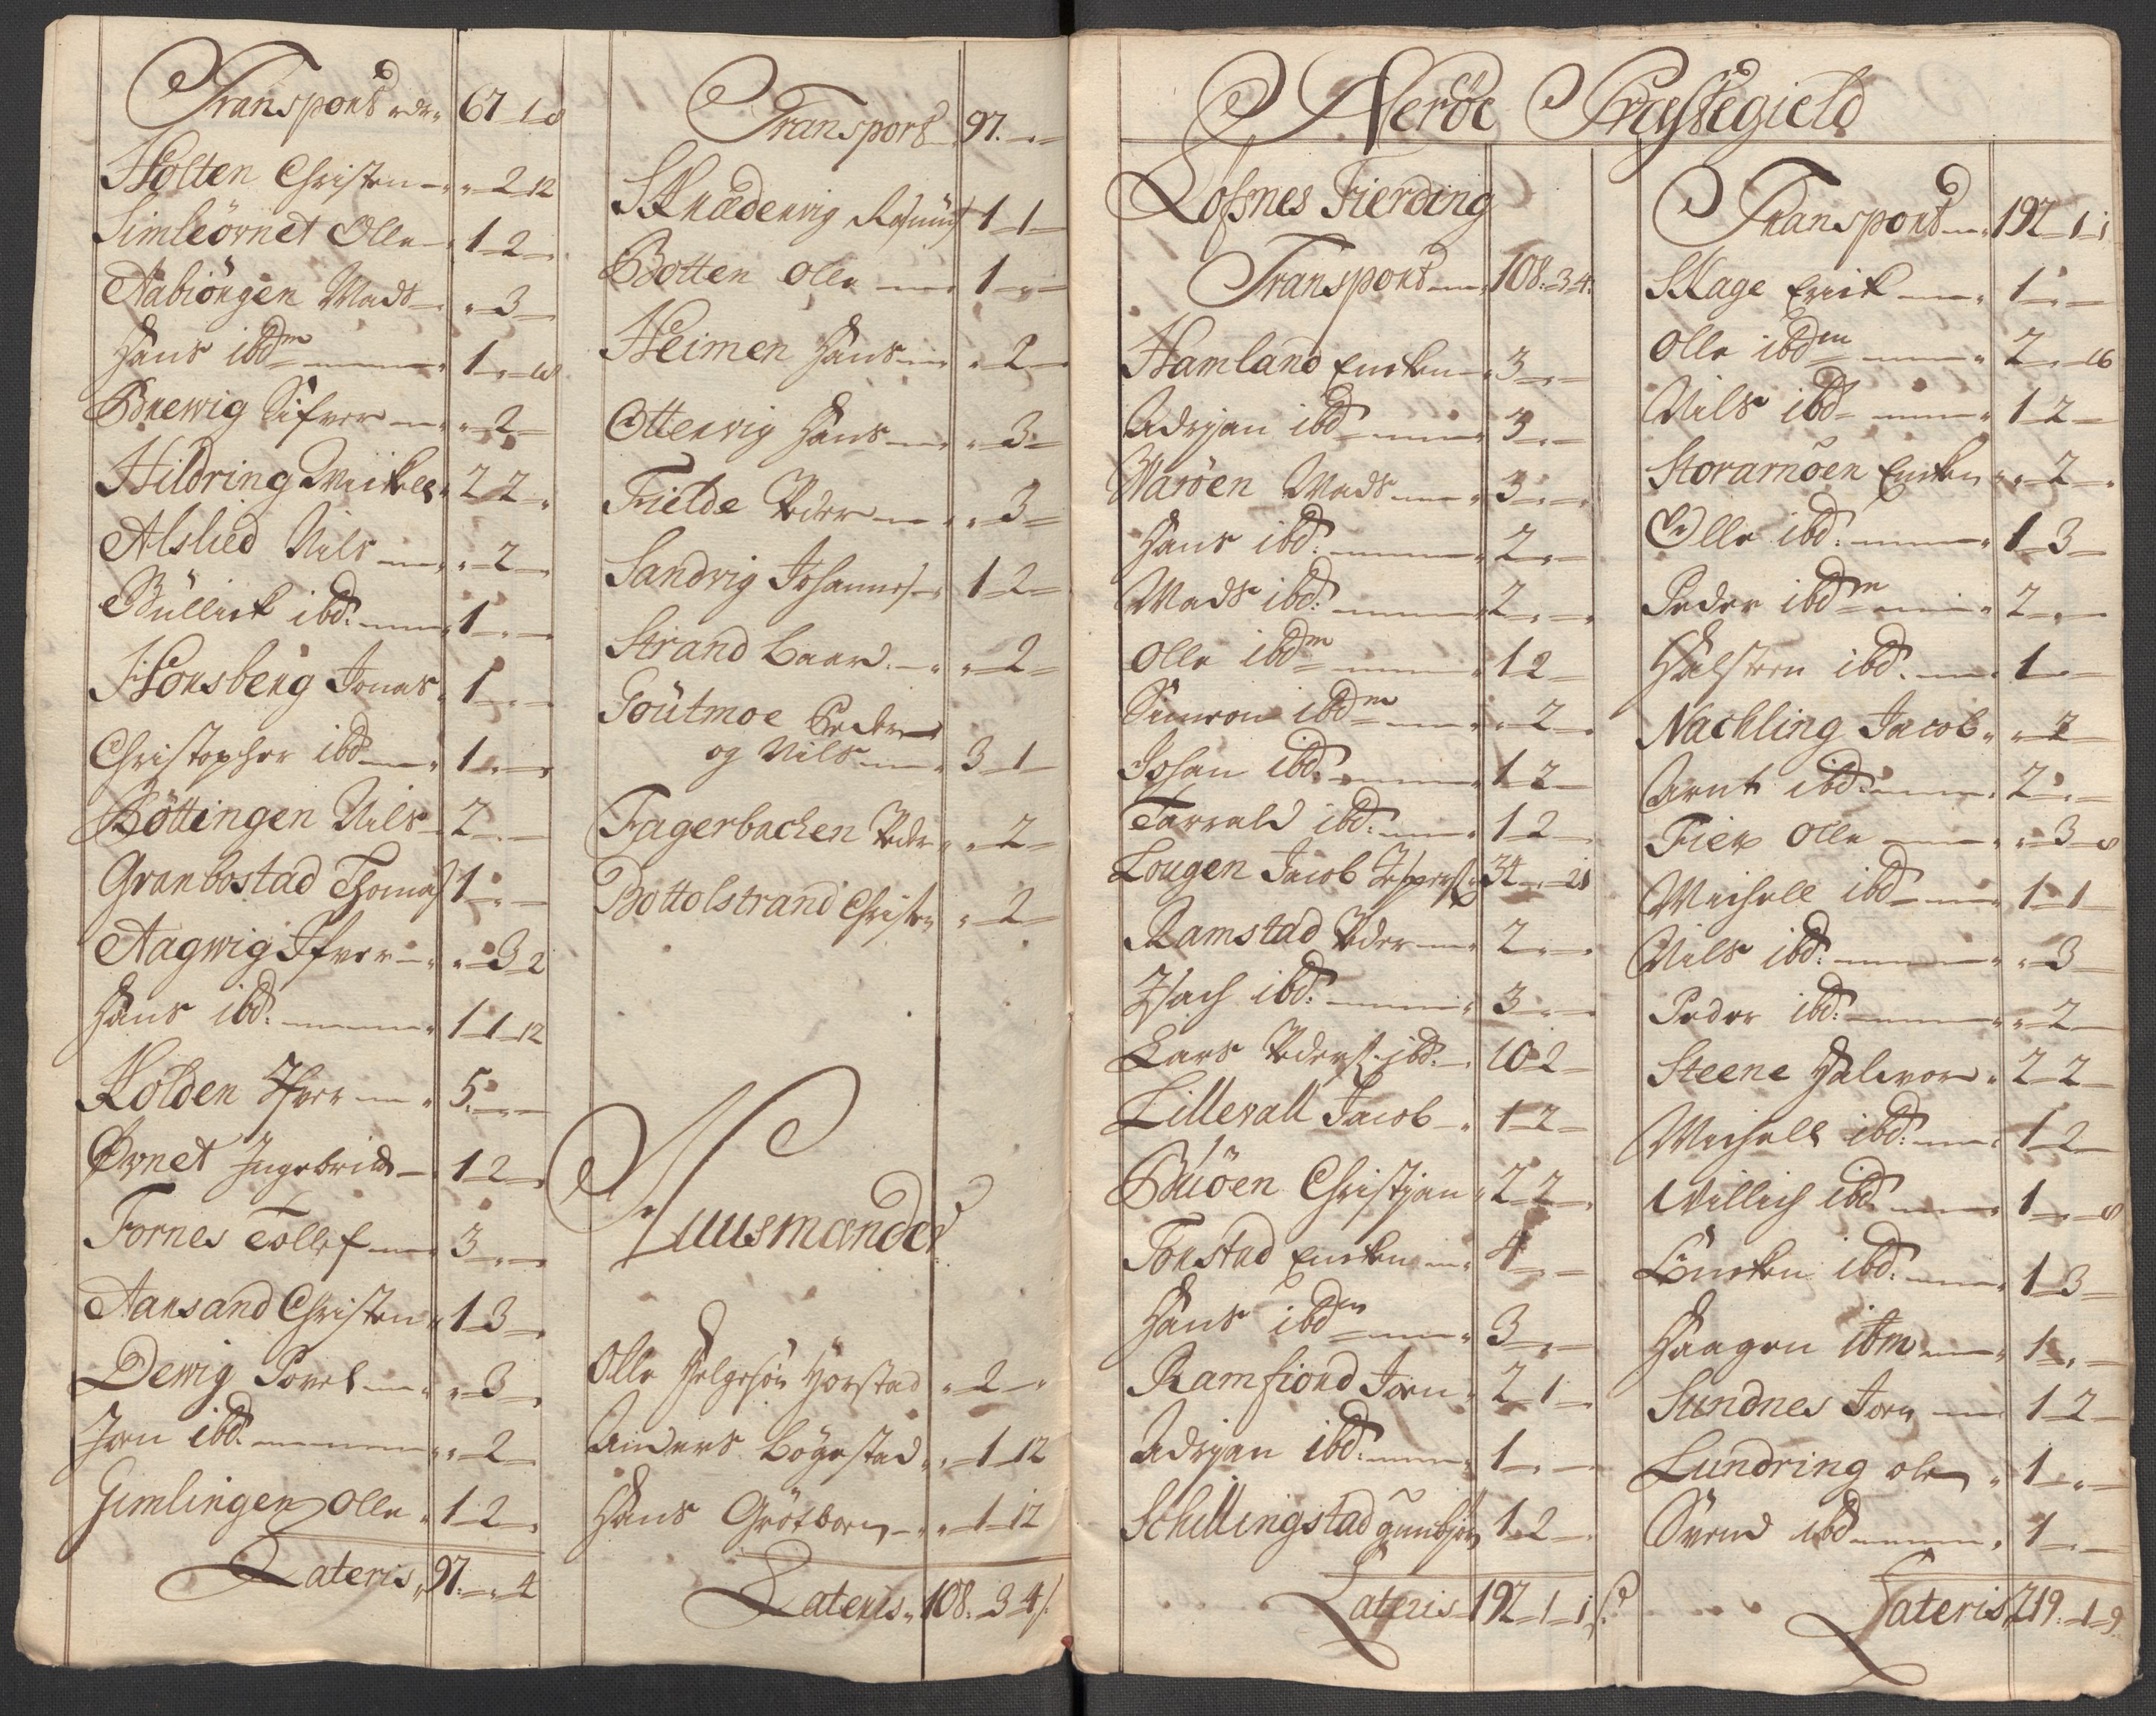 Transport rdr. 67-1-8
Holten Christen - „-2-12
Simleörnet Olle - 1-2-„
Aabiörgen Mads - „-3-
Hans ibdm 1-„-18
Brewig Sifver - „-2-
Hildring Mickell 2-2-„
Alslied Nils - „-2-„
Büllick ibd: 1-„-
Honsberg Jonas 1-„-
Christopher ibd 1-„-
Böttingen Nils 2-„-
Granbostad Thomas 1-„-
Aagwig Ifver - „-3-2
Hans ibd: 1-1-12
Kolden Ifver 5-„-
Øvnet Ingebricht - 1-2-
Fornes Tollef 3-„-
Aansand Christen 1-3-
Dewig Povel „-3-
Jorn ibd: „-2-
Gimlingen Olle 1-2-
Lateris 97.-„-4
Transport 97.-„-
Sknædenvig Rasmus 1-1-
Botten Olle 1-„-
Heimen Hans „-2-
Ottervig Hans „-3-
Fielde Peder „-3-
Sandvig Johannes 1-2-
Strand Baard - „-2-
Goutmoe Peder
og Nils 3-1-
Fagerbachen Peder „-2-
Bottolstrand Christen „-2-
Huusmænder
Olle Helgesön Horstad „-2-„
Anders Bögestad „-1-12
Hans Grötborn „-1-12
Lateris 108.-3-4
Neröe Præstegield
Lofsnes Fierding
Transport 108.-3-4
Hamland Encken 3-„-
Adrjan ibd 3-„-
Waröen Mads 3-„-
Hans ibd: 2-„-
Mads ibd: 2-„-
Olle ibdm 1-2-
Simon ibdm „-2-
Johan ibd: 1-2-
Tarrald ibd: 1-2-
Lougen Jacob Jespers: 34-„-21
Ramstad Peder 2-„-
Isach ibd: 3-„-
Lars Peders: ibd: 10-2-
Lillevall Jacob 1-2-
Buöen Christjan 2-2-
Fonstad Encken 4-„-
Hans ibdm 3-„-
Ramfiord Jorn 2-1-
Adrjan ibd: 1-„-
Schillingstad Gunbjör 1-2-
Lateris 192-1-1
Transport 192-1-1
Skage Erick 1-„-
Olle ibdm 2-„-16
Nils ibd 1-2-
Storamöen Encken „-2-„
Olle ibd: 1-3-
Peder ibdm 2-„-
Halsten ibd: 1-„-
Nachling Jacob „-2-
Arnt ibd: 2-„-
Fier Olle „-3-8
Michell ibd 1-1-
Nils ibd: „-3-
Peder ibd: „-2-
Steene Halvor 2-2-
Michell ibd: 1-2-
Willich ibd: 1-„-8
Encken ibd: 1-3-
Haagen ibm 1-„-
Sundnes Jorn 1-2-
Lundring ole 1-„-
Svend ibd 1-„-
Lateris 219.-1-9